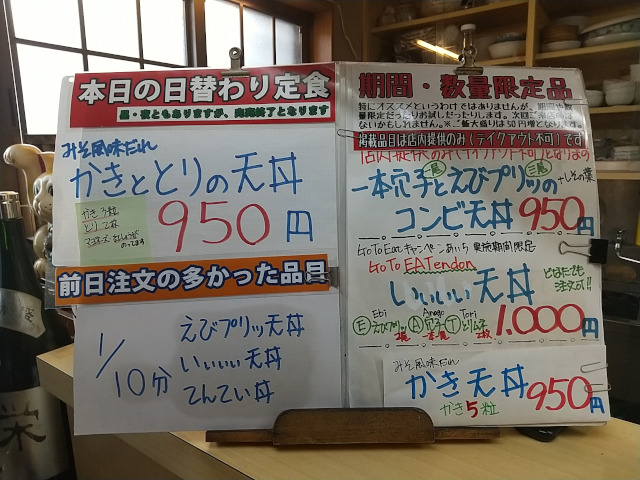 本日の日替わり定食
昼・夜ともありますが、完売終了となります
みそ風味だれ
かきととりの天丼
かき3粒
とり2枚
950円
前日注文の多かった品目
1/10分
えびプリッ天丼
いぃいぃ天丼
てんてい丼
期間・数量限定品
特にオススメというわけではありませんが、期間や数
量限定だったりお試しだったりします。次回ご来店時に
ないかもしれません。※ご飯大盛りは50円増となります
掲載品目は店内提供のみ(テイクアウト不可)です
一本穴子とえびプリッの
一尾
三尾
+しその葉
コンビ天丼 950円
GoTo Eatキャンペーンあいち 実施期間限定
GoTo EATendon
いぃいぃ天丼
どなたでも
注文OK!!
Ebi Anago Tori
Ⓔえびプリッ Ⓐ穴子 Ⓣとりむね
1,000円
みそ風味だれ
かき天丼 950円
かき5粒
栄